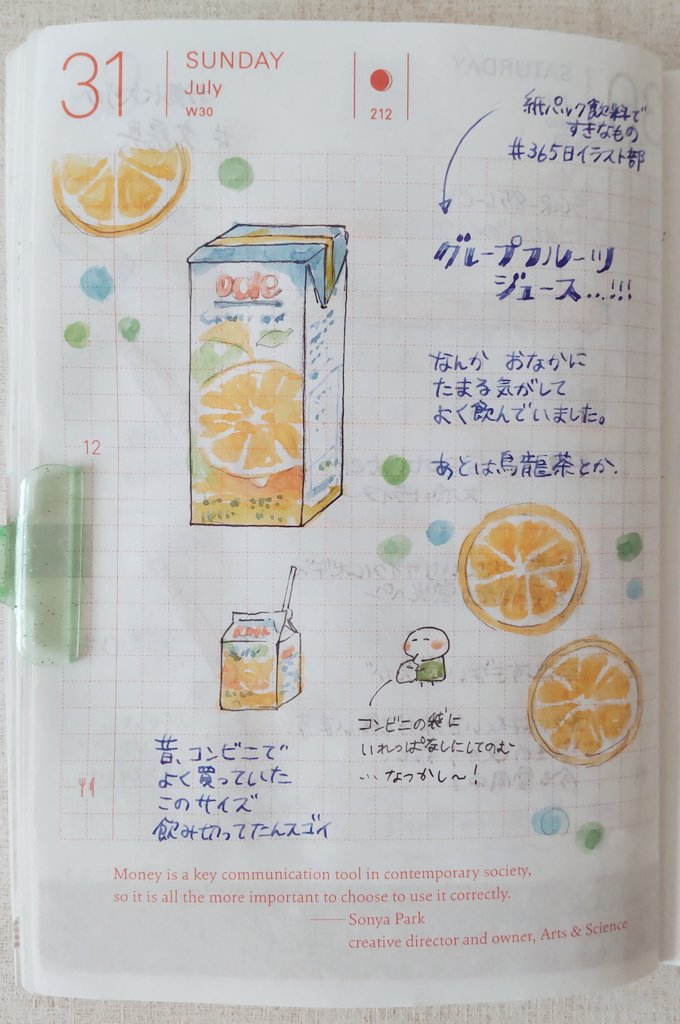 31
SUNDAY
July
W30
212
紙パック飲料で
すきなもの
#365日イラスト部
グループフルーツ
ジュース...!!!
なんか おなかに
たまる気がして
よく飲んでいました。
あとは烏龍茶とか.
12
Dole
コンビニの袋に
いれっぱなしにしてのむ
... なつかし〜!
昔、コンビニで
よく買っていた
このサイズ
飲み切ってたんスゴイ
Money is a key communication tool in contemporary society,
so it is all the more important to choose to use it correctly.
Sonya Park
creative director and owner, Arts & Science